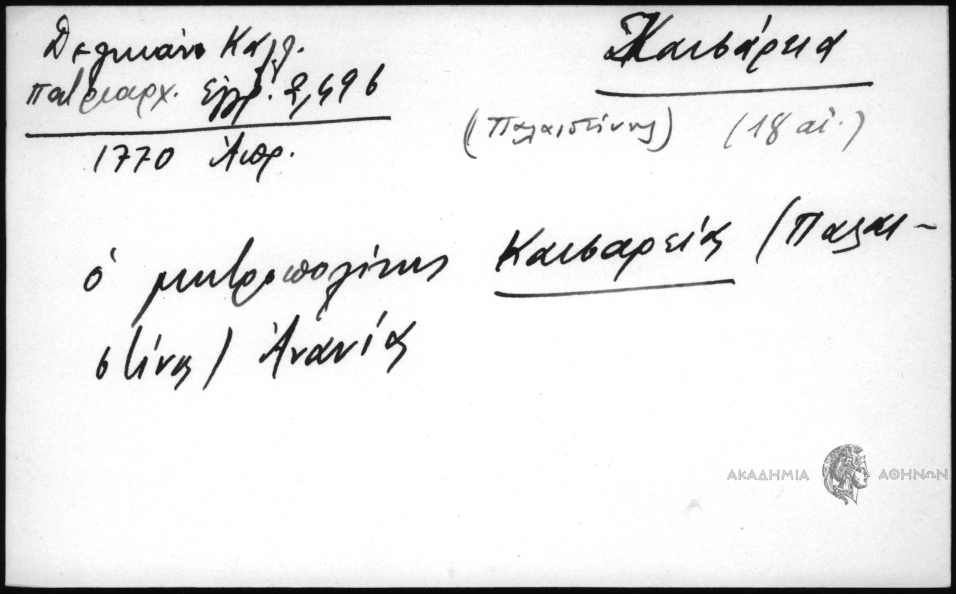 Δελικάνη Καλλ.
πατριαρχ. Εγγρ. 2, 496
1770 Απρ.
Καισάρεια
(Παλαιστίνης) (18 αἰ.)
ὁ μητροπολίτης Καισαρείας (Παλαι-
στίνης) Ἀνανίας
ΑΚΑΔΗΜΙΑ ΑΘΗΝΩΝ